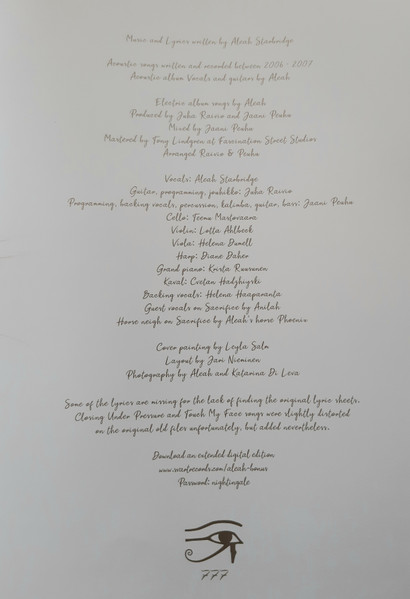 Music and Lyrics written by Aleah Starbridge
Acoustic songs written and recorded between 2006 - 2007
Acoustic album Vocals and guitars by Aleah
Electric album songs by Aleah
Produced by Juha Raivio and Jaani Peuhu
Mixed by Jaani Peuhu
Mastered by Tony Lindgren at Fascination Street Studios
Arranged Raivio & Peuhu
Vocals: Aleah Starbridge
Guitar, programming, jouhikko: Juha Raivio
Programming, backing vocals, percussion, kalimba, guitar, bass: Jaani Peuhu
Cello: Teemu Mastovaara
Violin: Lotta Ahlbeck
Viola: Helena Dumell
Harp: Diane Daher
Grand piano: Krista Rauvanen
Kaval: Cvetan Hadzhiyski
Backing vocals: Helena Haaparanta
Guest vocals on Sacrifice by Anilah
Horse neigh on Sacrifice by Aleah's horse Phoenix
Cover painting by Leyla Salm
Layout by Jari Nieminen
Photography by Aleah and Katarina Di Leva
Some of the lyrics are missing for the lack of finding the original lyric sheets.
Closing Under Pressure and Touch My Face songs were slightly distorted
on the original old files unfortunately, but added nevertheless.
Download an extended digital edition
www.svartrecords.com/aleah-bonus
Password: nightingale
777